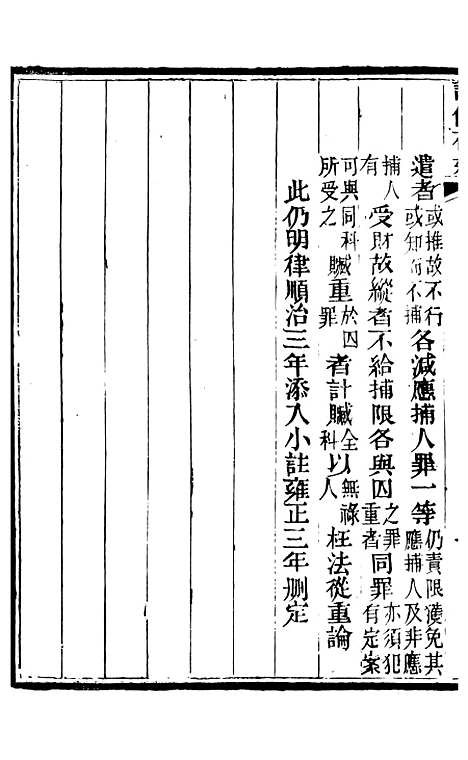 遣者或推故不行或知而不捕各減應捕人罪一等仍責限獲免其應捕人及非應
捕人有受財故縱者不給捕限各與囚之罪重者同罪亦須犯有定案
可與同科所受之贓重於囚罪者計贓全科以無祿人枉法從重論
此仍明律順治三年添入小註雍正三年刪定